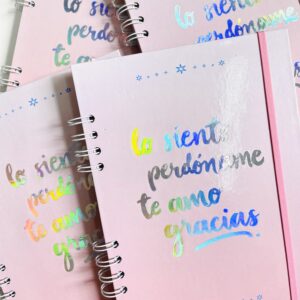 lo siento
perdóname
te amo
gracias
lo siento
perdóname
te amo
gracias
lo sie
perdóna
te am
graci